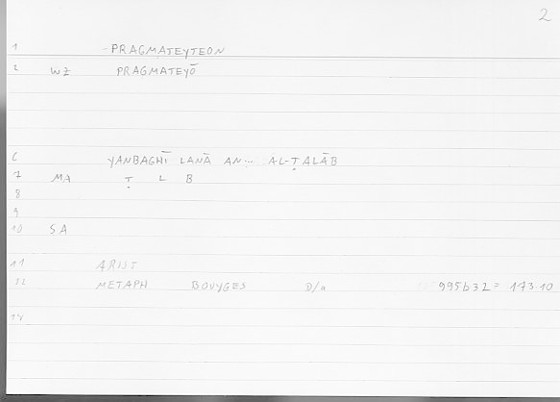 2
1 -PRAGMATEYTEON
2 WZ PRAGMATEYŌ
6 YANBAGHĪ LANĀ AN... AL-ṬALĀB
7 MA Ṭ L B
8
9
10 SA
11 ARIST
12 METAPH BOUYGES 995b32 = 173.10
14